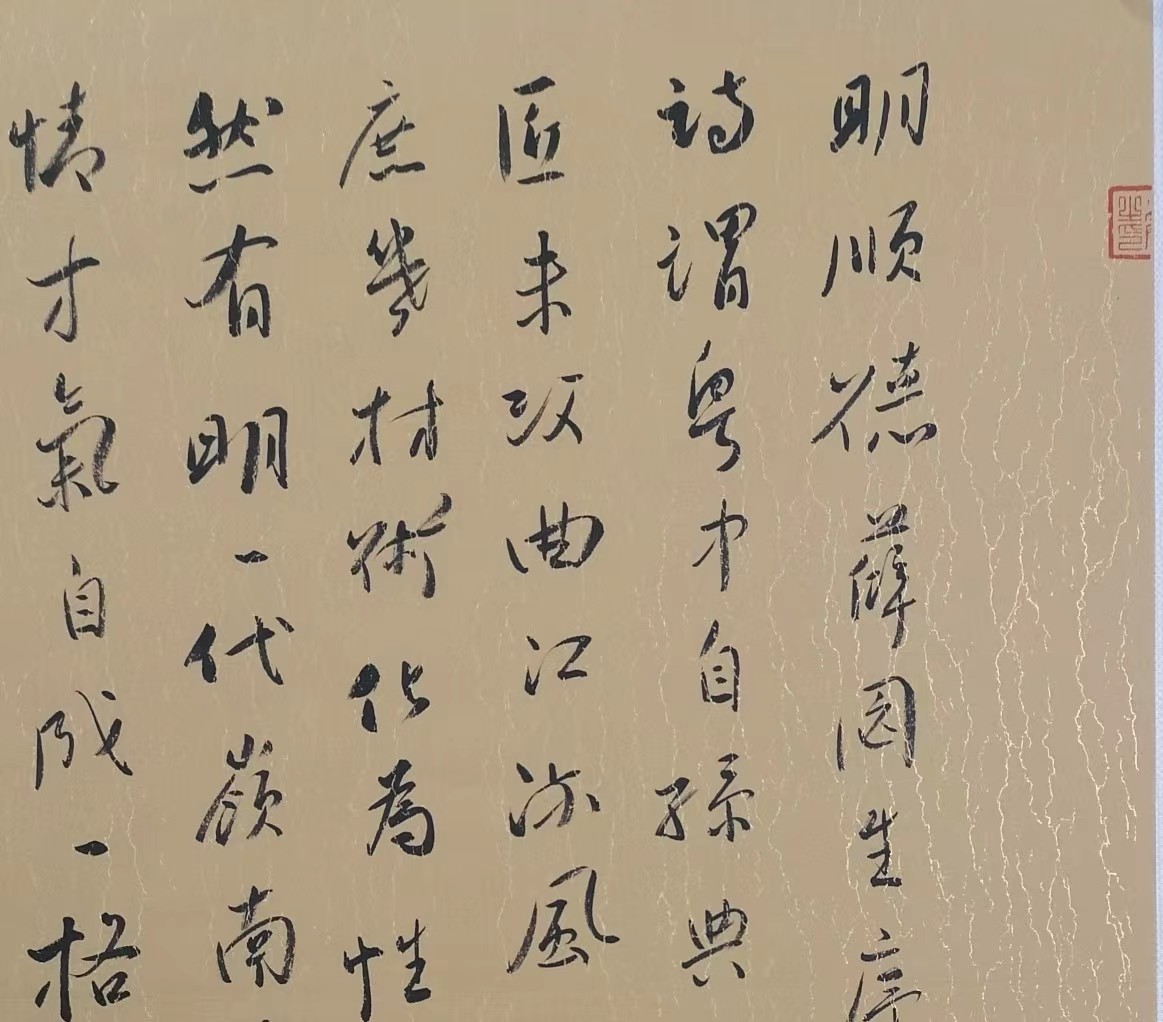 明順德薛岡生序
詩謂粵中自孫典
匠未攻曲江流風
庶幾材術化為性
然有明一代嶺南
情才氣自成一格